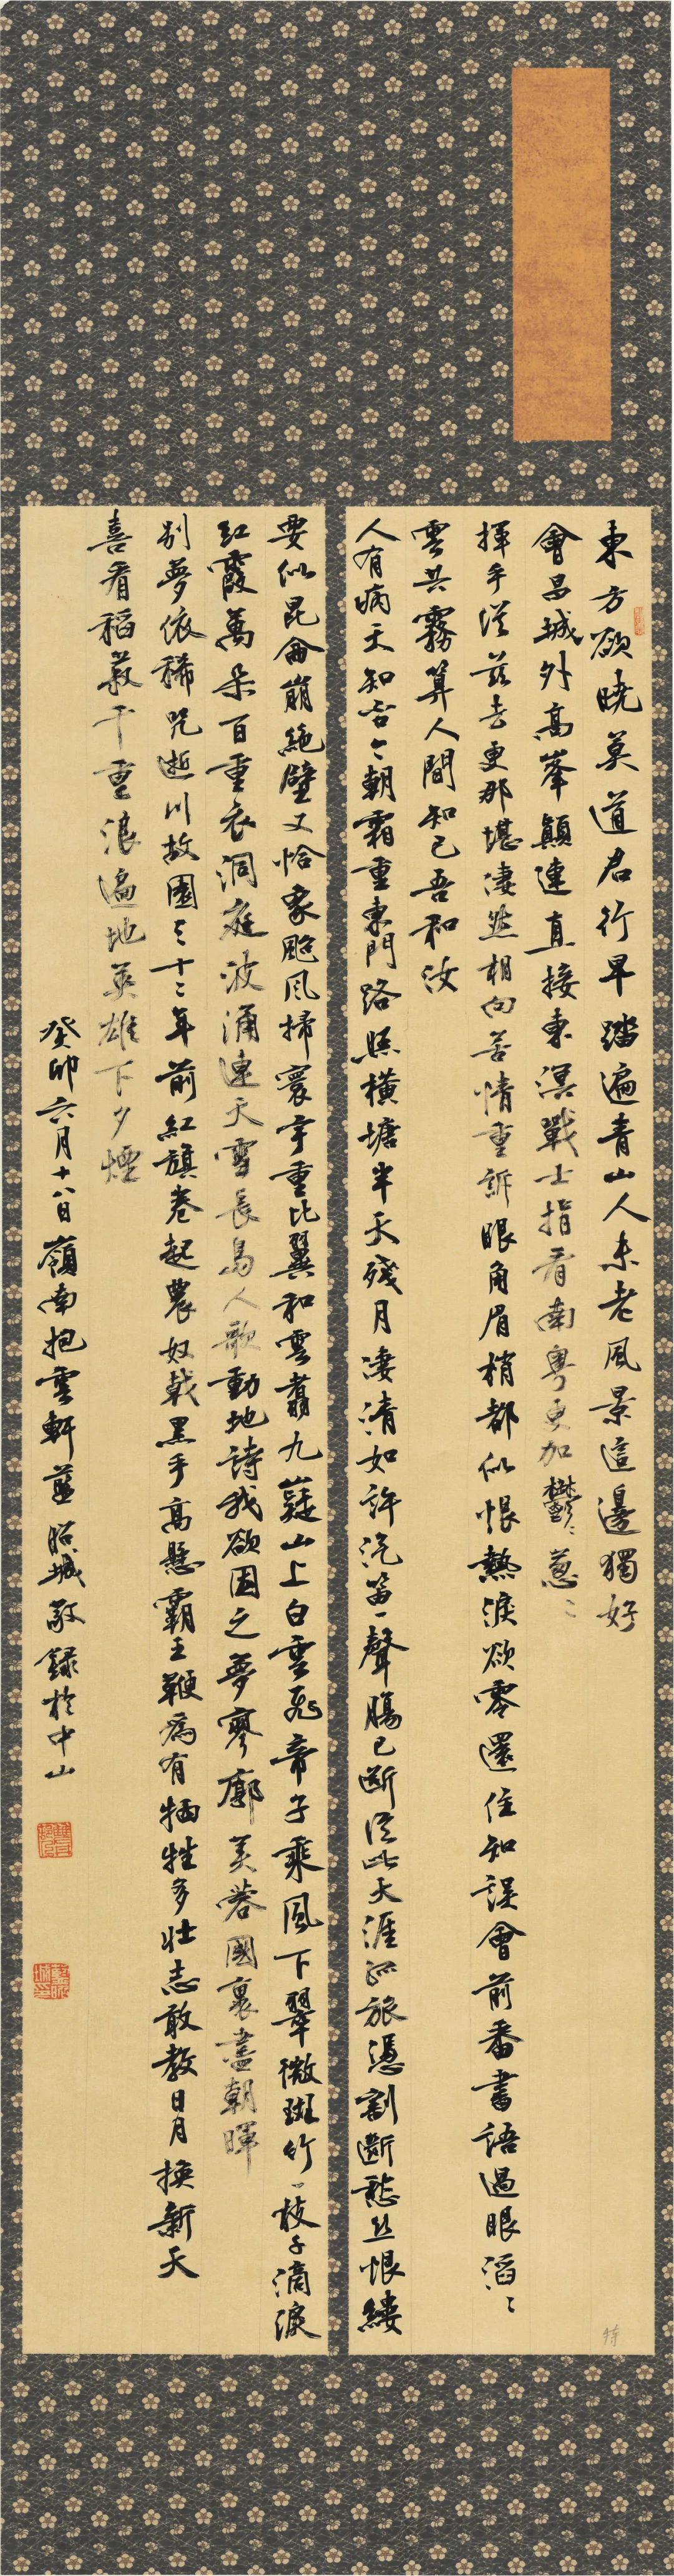 東方欲曉莫道君行早踏遍青山人未老風景這邊獨好
會昌城外高峯顛連直接東溟戰士指看南粵更加鬱〻蔥〻
揮手從茲去更那堪凄然相向苦情重訴眼角眉梢都似恨熱淚欲零還住知誤會前番書語過眼滔〻
雲共霧算人間知己吾和汝
人有病天知否今朝霜重東門路照橫塘半天殘月凄清如許汽笛一聲腸已斷從此天涯孤旅憑割斷愁絲恨縷
要似昆侖崩絕壁又恰象颱風掃寰宇重比翼和雲翥九嶷山上白雲飛帝子乘風下翠微斑竹一枝千滴淚
紅霞萬朵百重衣洞庭波涌連天雪長島人歌動地詩我欲因之夢寥廓芙蓉國裏盡朝暉
別夢依稀咒逝川故園三十二年前紅旗卷起農奴戟黑手高懸霸主鞭爲有犧牲多壯志敢教日月換新天
喜看稻菽千重浪遍地英雄下夕煙
癸卯六月十八日嶺南抱雲軒藍昭城敬錄於中山
特